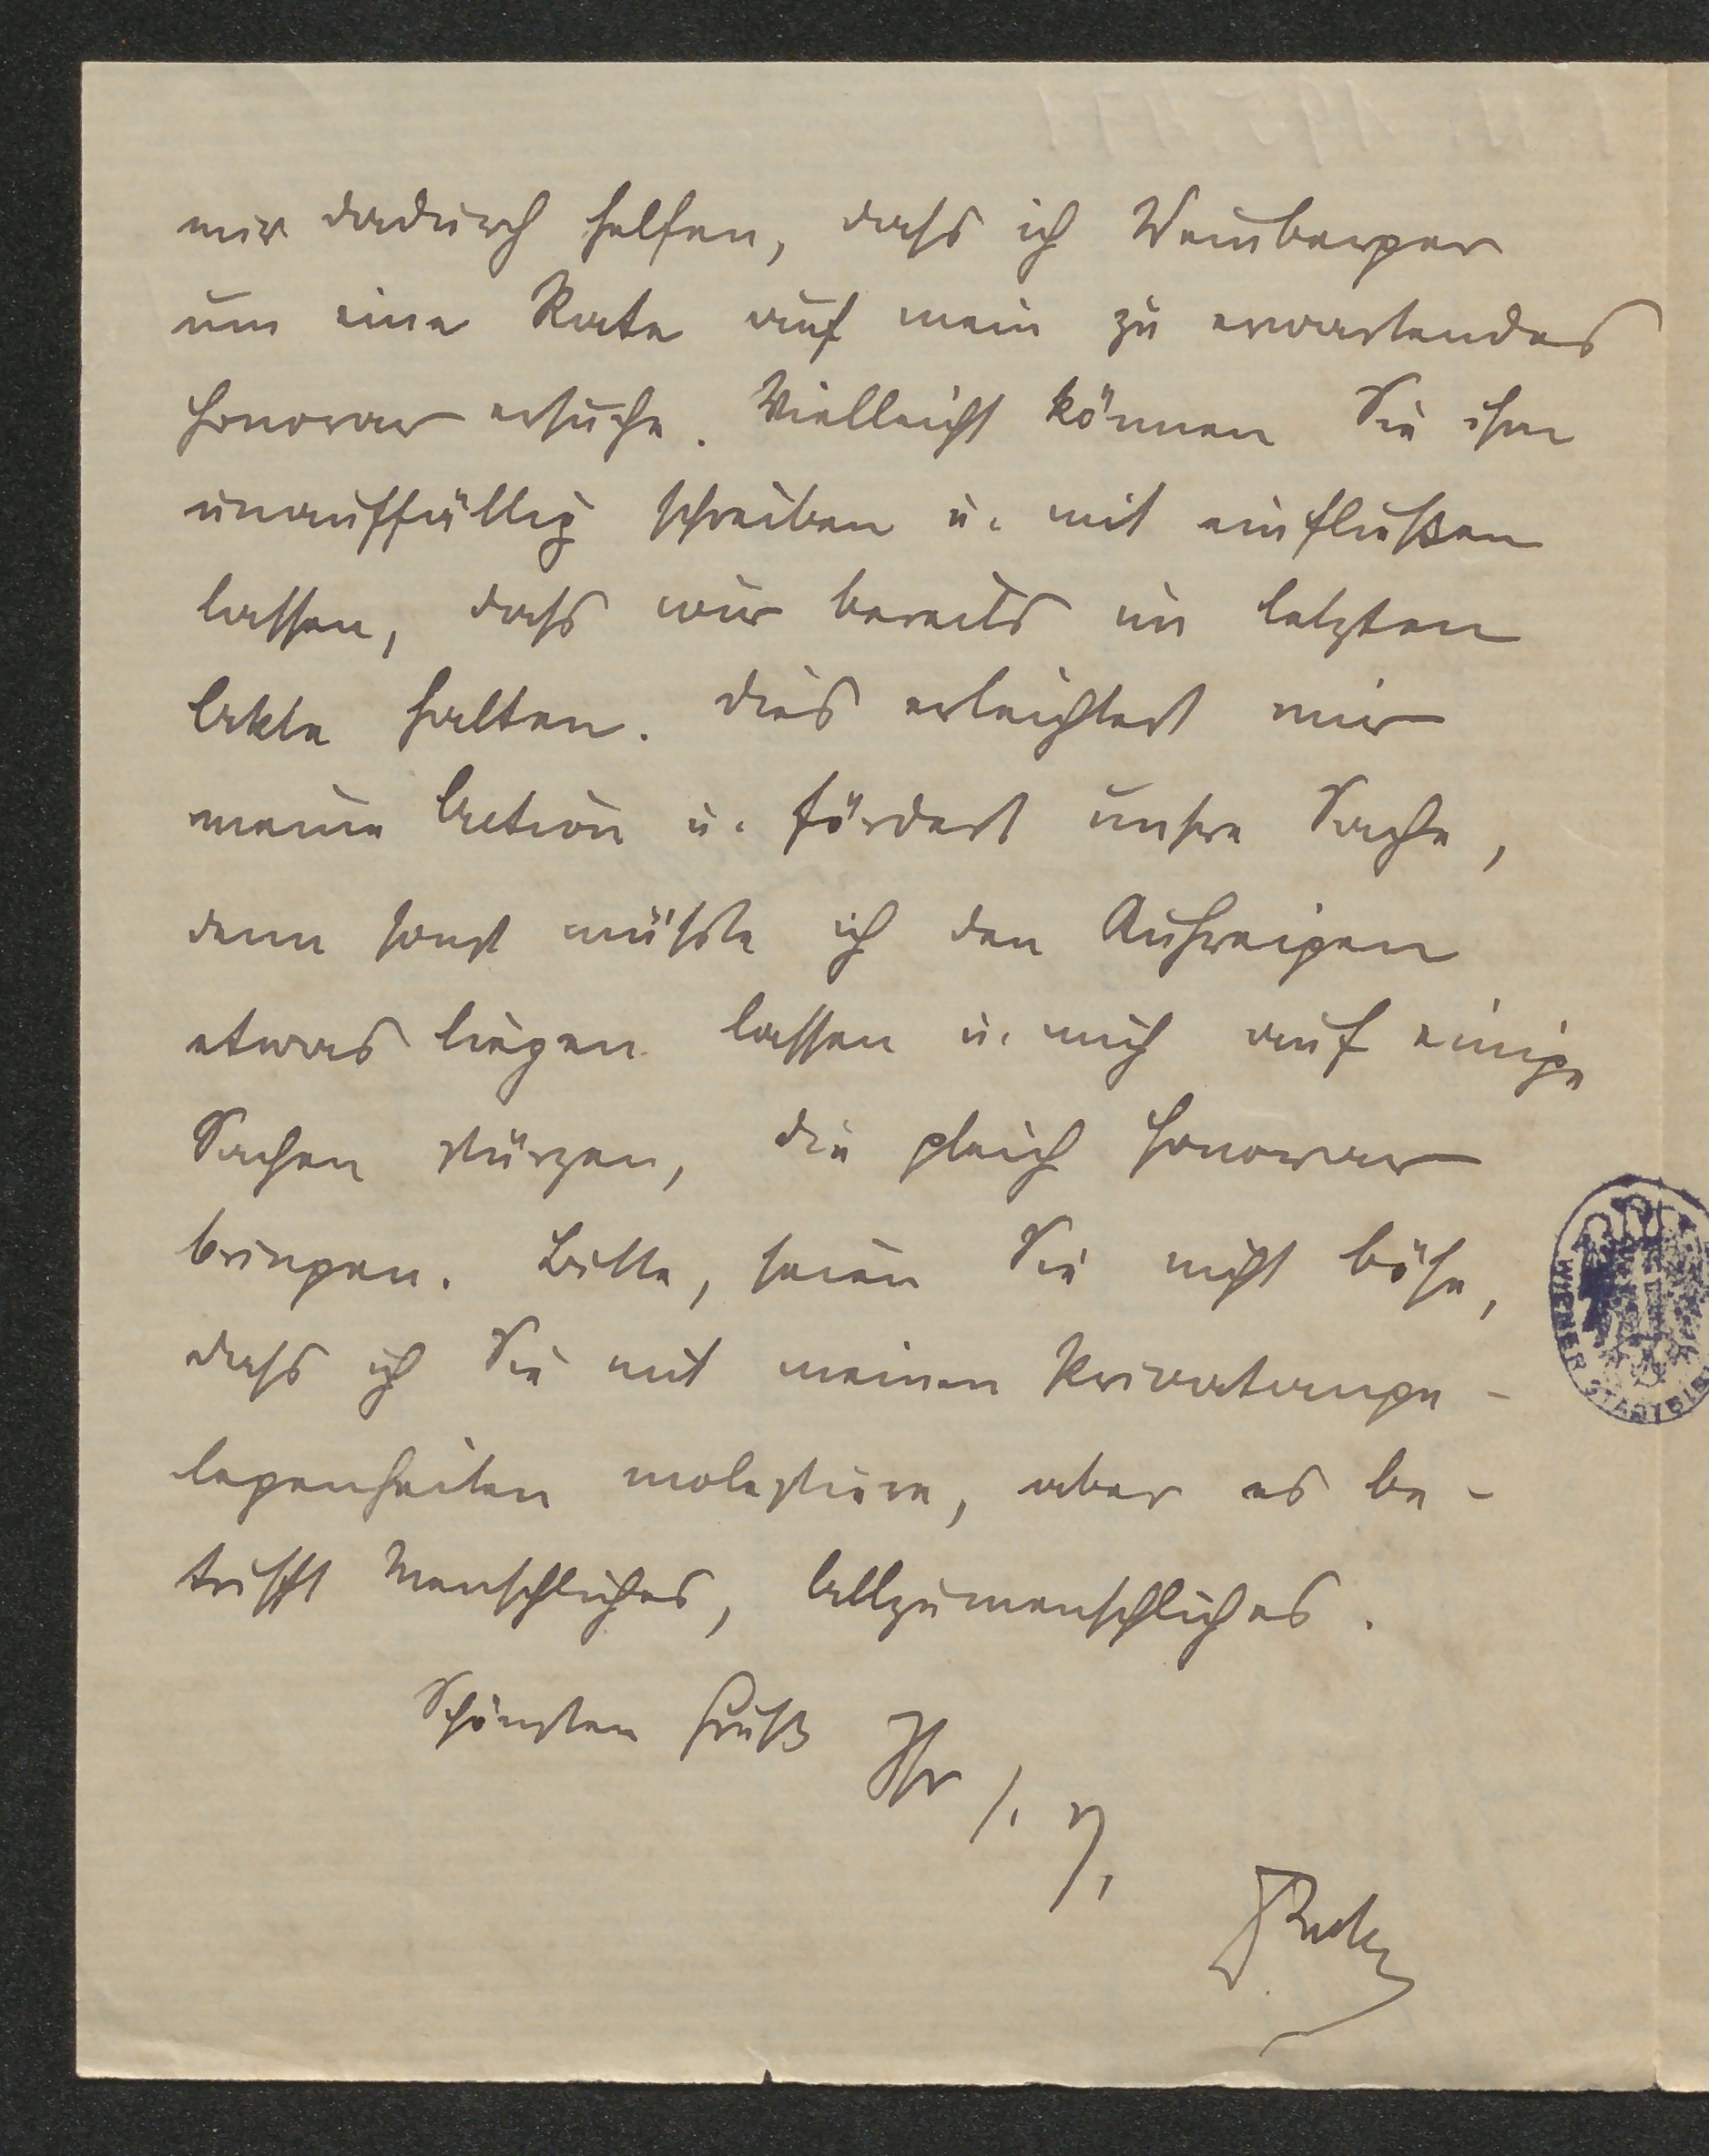 mir dadurch helfen, dass ich Weinberger
um eine Rate auf mein zu erwartendes
Honorar ersuche. Vielleicht können Sie ihm
unauffällig schreiben u. mit einfließen
lassen, dass wir bereits im letzten
Akte halten. Dies erleichtert mir
meine Action u. fördert unsre Sache,
denn sonst müsste ich den
etwas liegen lassen u. mich auf einige
Sachen stürzen, die gleich Honorar
bringen. Bitte, seien Sie nicht böse,
dass ich Sie mit meinen Privatange-
legenheiten molestiere, aber es be-
trifft Menschliches, Allzumenschliches.
Schönsten Gruß Ihr
WIENER STADTBI